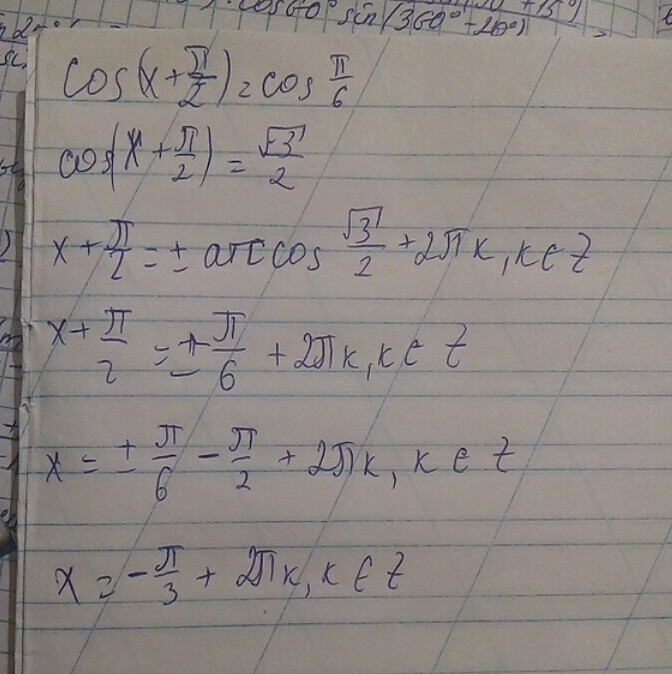 cos60° sin(360°-20°)
cos(x + π/2) = cos π/6
cos(x + π/2) = √3/2
x + π/2 = ± arccos √3/2 + 2πk, k ∈ Z
x + π/2 = ± π/6 + 2πk, k ∈ Z
x = ± π/6 - π/2 + 2πk, k ∈ Z
x = -π/3 + 2πk, k ∈ Z